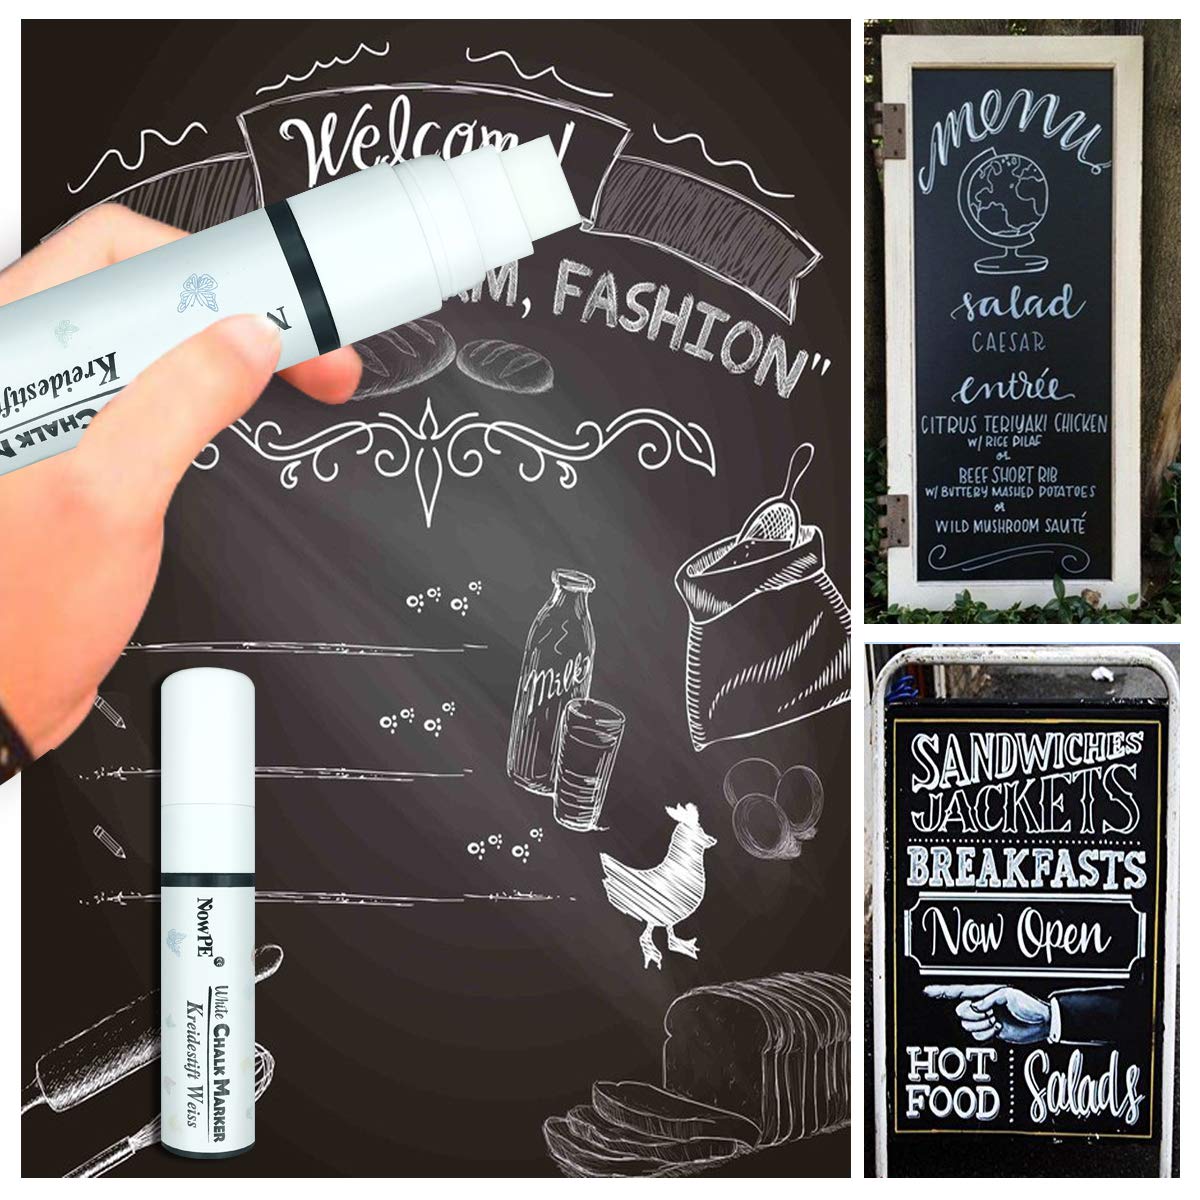 Welcome!
M, FASHION"
N
Kreidestift
CHALK M
Milk
NowPE®
White CHALK MARKER
Kreidestift Weiss
menu
salad
CAESAR
entrée
CITRUS TERIYAKI CHICKEN
W/ RICE PILAF
or
BEEF SHORT RIB
W/ BUTTERY MASHED POTATOES
or
WILD MUSHROOM SAUTÉ
SANDWICHES
JACKETS
BREAKFASTS
Now Open
HOT FOOD
Salads